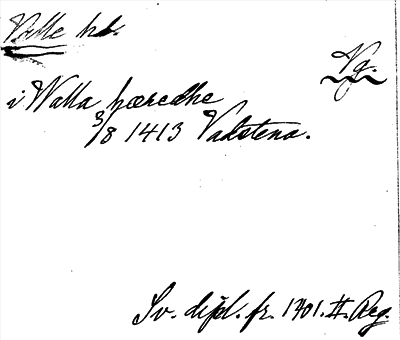 Valle hd.
Vg.
i Walla hæredhe
3/8 1413 Vadstena.
Sv. dipl. fr. 1401. II. Reg.